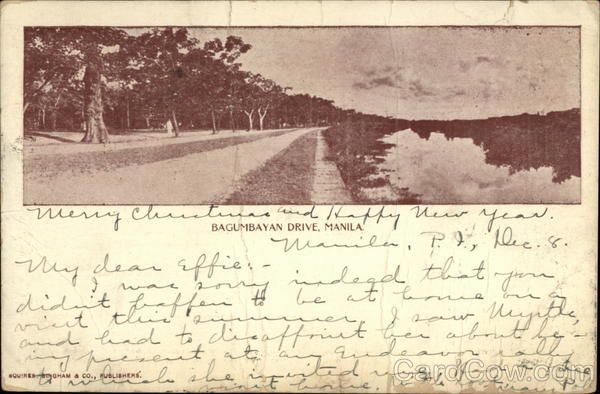 Merry Christmas and Happy New Year.
BAGUMBAYAN DRIVE, MANILA.
Manila, P. I., Dec. 8.
My dear Effie:-
I was sorry indeed that you
didn't happen to be at home on a
visit this summer. I saw Myrtle,
and had to disappoint her about be-
ing present at any Endeavor
to which she invited me
SQUIRES, BINGHAM & CO., PUBLISHERS.
home,
CardCow.com